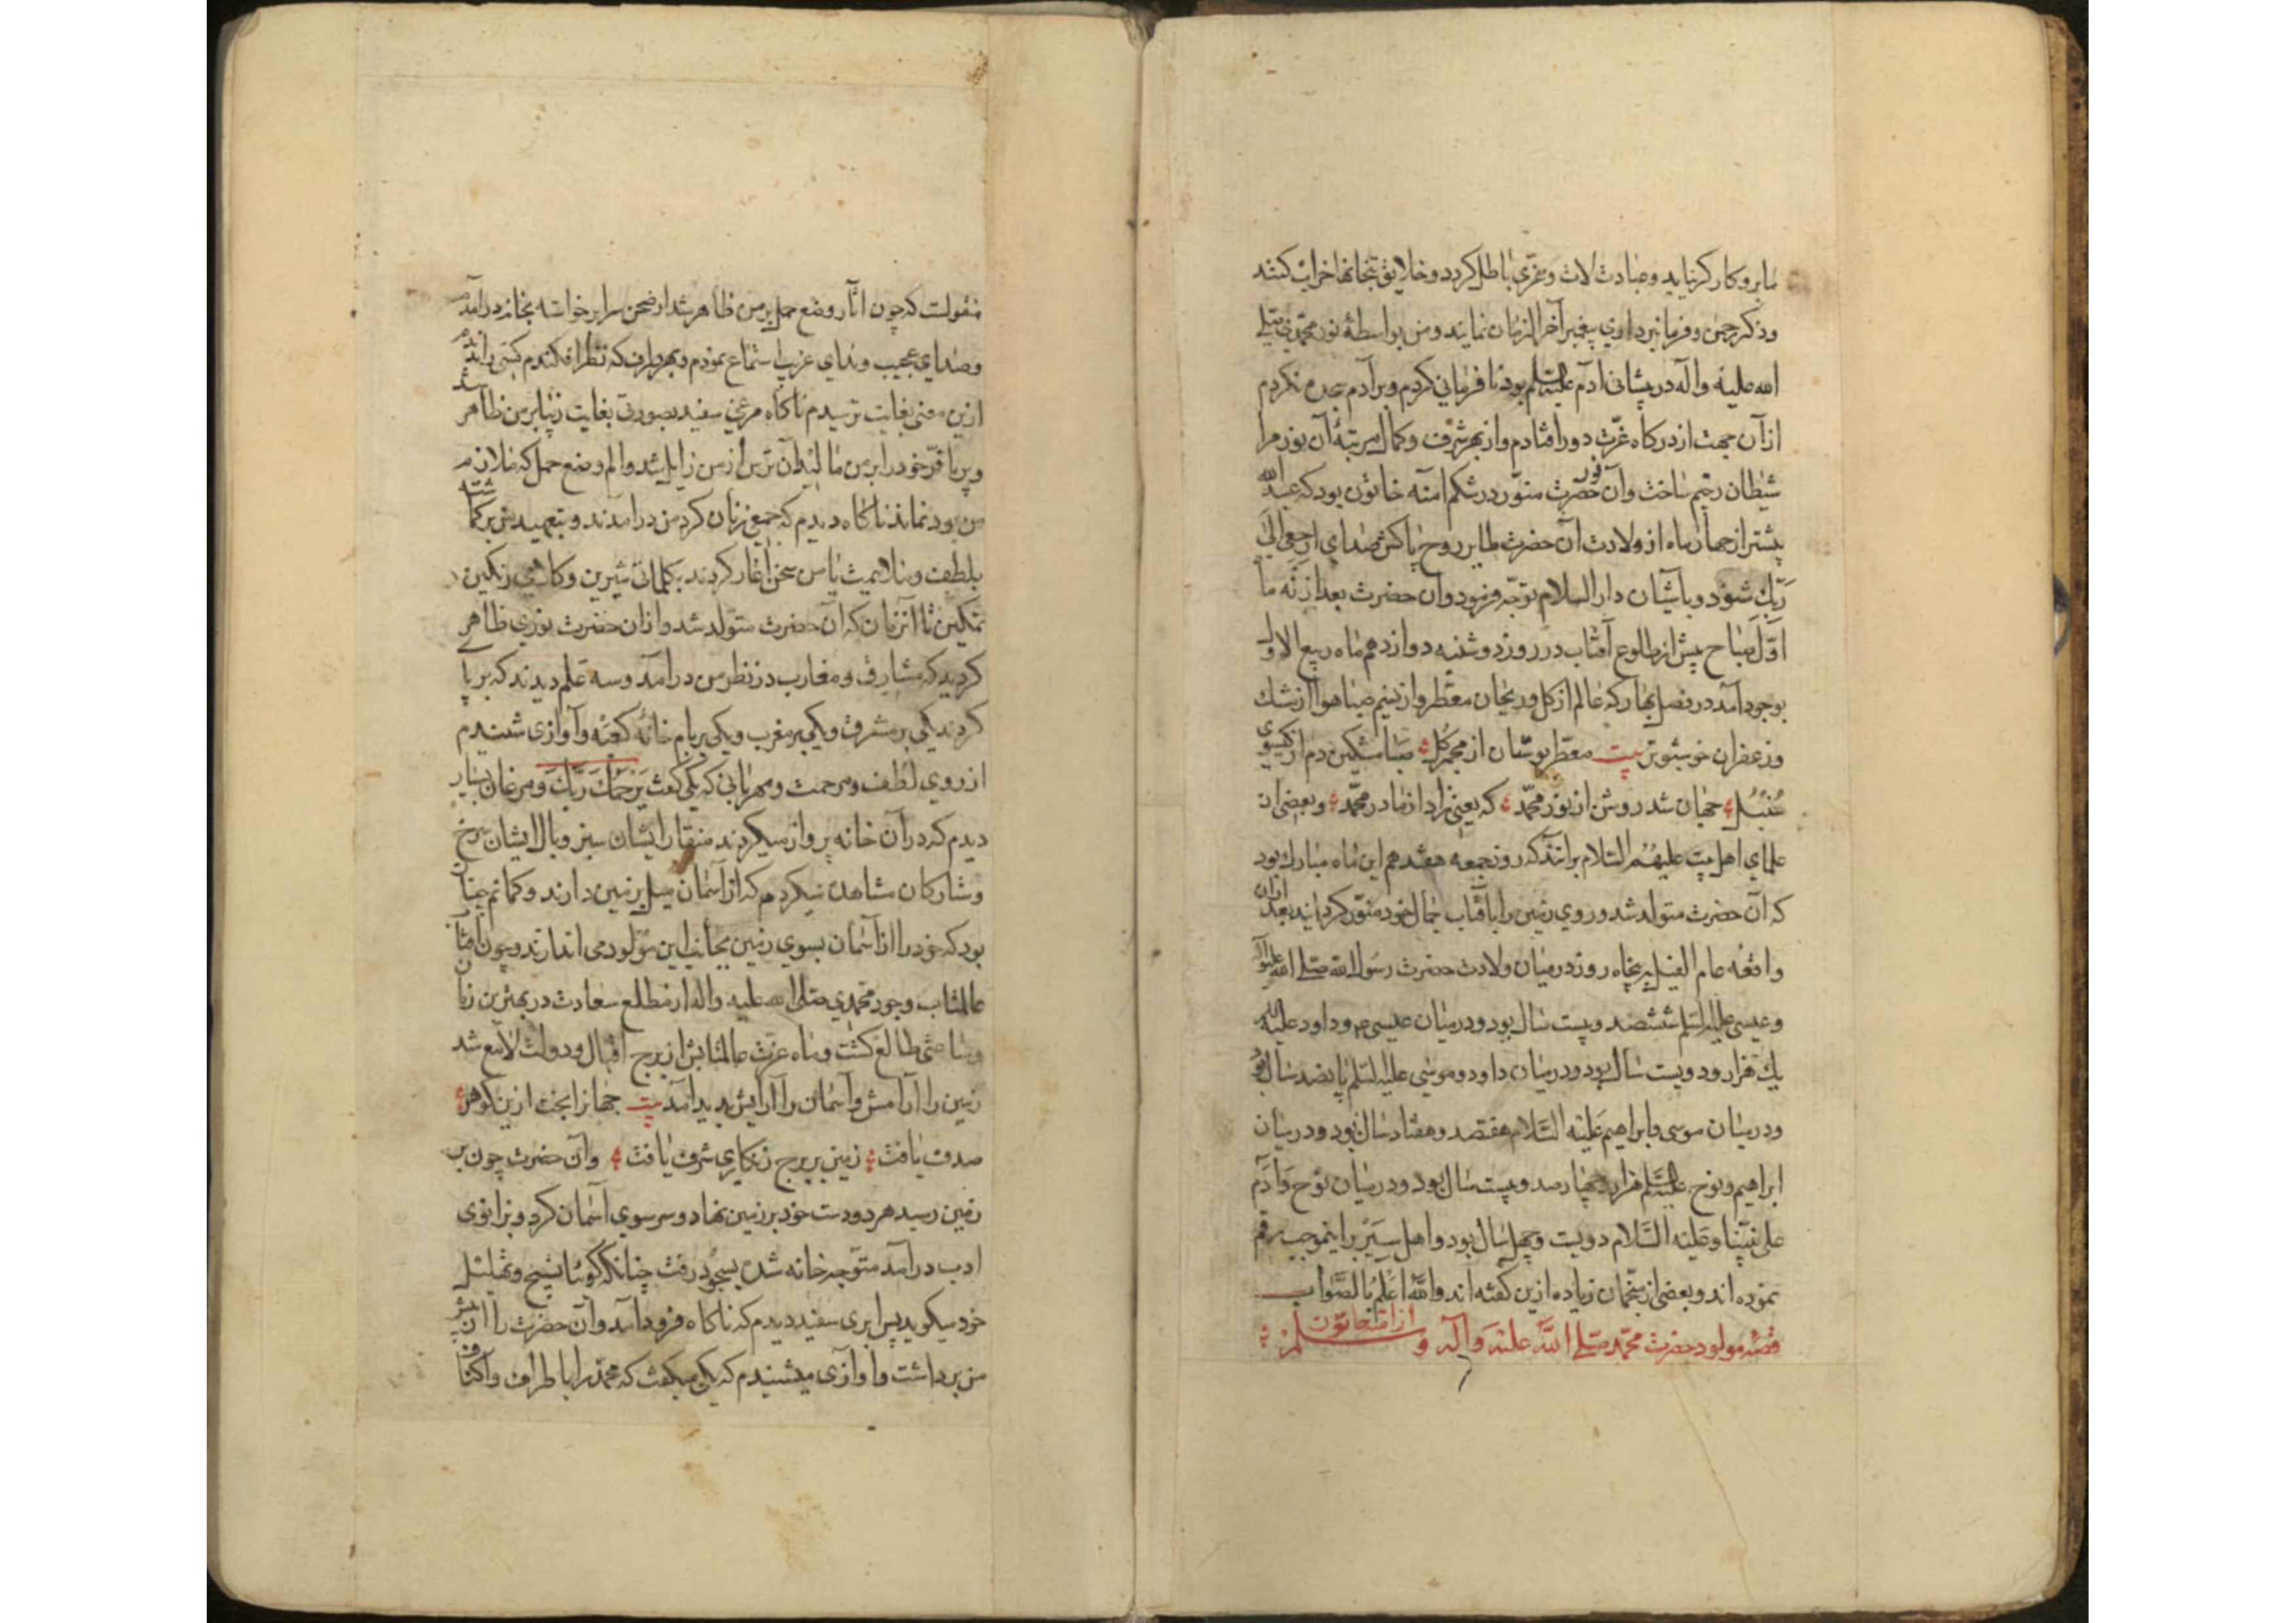 ما برو کار کر نیاید و عبادت لات و عزّی باطل کردد و خلایق بتخانها خراب کنند
و ذکر رحمن و فرمانبرداری پیغمبر آخر الزمان نمایند و من بواسطهٔ نور محمد نبی صلی
الله علیه و آله در پیشانی آدم علیه السلم بود نافرمانی کردم و بر آدم سجده نکردم
از آن جهت از درکاه عزّت دور افتادم و از بهر شرف و کمال مرتبهٔ آن نور مرا
شیطان رجیم ساخت و آن نور حضرت منوّر در شکم آمنه خاتون بود که عبد الله
پیشتر از چهار ماه از ولادت آن حضرت طایر روح پاکش صدای ارجعی الی
ربّک شنود و باشیان دار السلام توجّه فرمود و آن حضرت بعد از نه ماه
اوّل صباح پیش از طلوع آفتاب در روز دوشنبه دوازدهم ماه ربیع الاول
بوجود آمد در فصل بهار که عالم از کل و ریحان معطّر و از نسیم صبا هوا از مشک
و زعفران خوشبوتر بیت معطّر بوستان از مجمر کل صبا مشکین دم از کیسوی
سُنبُل جهان شد روشن از نور محمّد که یعنی زاد از مادر محمّد و بعضی از
علمای اهل بیت علیهم السلام برانند که روز جمعه هفدهم این ماه مبارک بود
که آن حضرت متولد شد و روی زمین را بآفتاب جمال خود منوّر کردانید بعد از آن
واقعه عام الفیل بپنجاه روز در میان ولادت حضرت رسول الله صلی الله علیه و آله
و عیسی علیه السلم ششصد و بیست سال بود و در میان عیسی م و داود علیه السلم
یک هزار و دویست سال بود و در میان داود و موسی علیه السلم پانصد سال بود
و در میان موسی و ابراهیم علیه السّلام هفتصد و هفتاد سال بود و در میان
ابراهیم و نوح علیه السّلم هزار و چهارصد و بیست سال بود و در میان نوح و آدم
علی نبیّنا و علیه السّلام دویست و چهل سال بود و اهل سِیَر براینموجب رقم
نموده اند و بعضی از منجّمان زیاده ازین کفته اند و الله اعلم بالصّواب
قصّه مولود حضرت محمّد صلی الله علیه و آله و سلم از آمنه خاتون
منقولست که چون آثار وضع حمل بر من ظاهر شد از صحن سرا برخواسته بخانه درآمدم
و صدای عجیب و ندای غریب استماع نمودم و بهر طرف که نظر افکندم کسی را ندیدم
ازین معنی بغایت ترسیدم ناکاه مرغی سفید بصورتی بغایت زیبا بر من ظاهر شد
و پر با فرّ خود را بر من مالید آن ترس از من زایل شد و الم وضع حمل که ملازم
من بود نماند ناکاه دیدم که جمعی زنان کرد من درآمدند و
بلطف و ملایمت با من سخن آغاز کردند بکلماتی شیرین و کلامی رنکین
تمکین تا آنزمان که آن حضرت متولد شد و از آن حضرت نوری ظاهر
کردید که مشارق و مغارب در نظر من درآمد و سه علم دیدند که بر پای
کردند یکی بر مشرق و یکی بر مغرب و یکی بر بام خانهٔ کعبه و آوازی شنیدم
از روی لطف و مرحمت و مهربانی که یکی کفت یَرحَمُکَ رَبُّکَ و مرغان بسیار
دیدم که در آن خانه پرواز میکردند منقار ایشان سبز و بال ایشان سرخ
و ستارکان مشاهده میکردم که از آسمان میل بزمین دارند و کمانم چنان
بود که خود را از آسمان بسوی زمین بجانب این مولود می اندازند و چون آفتاب
عالمتاب وجود محمّدی صلی الله علیه و آله از مطلع سعادت در بهترین زمان
و ساعتی طالع کشت و ماه عزّت عالمتابش از برج اقبال و دولت لامع شد
زمین را آرامش و آسمان را آرایش پدید آمد بیت جهانرا بخت ازین کوهر
صدف یافت زمین بر برج زنکاری شرف یافت و آن حضرت چون بر
زمین رسید هر دو دست خود بر زمین نهاد و سر سوی آسمان کرد و بزانوی
ادب درآمد متوّجه خانه شده بسجود رفت چنانکه کوئیا تسبیح و تهلیل
خود میکوید پس ابری سفید دیدم که ناکاه فرود آمد و آن حضرت را از پیش
من برداشت و آوازی میشنیدم که یکی میکفت که محمّد را باطراف و اکناف